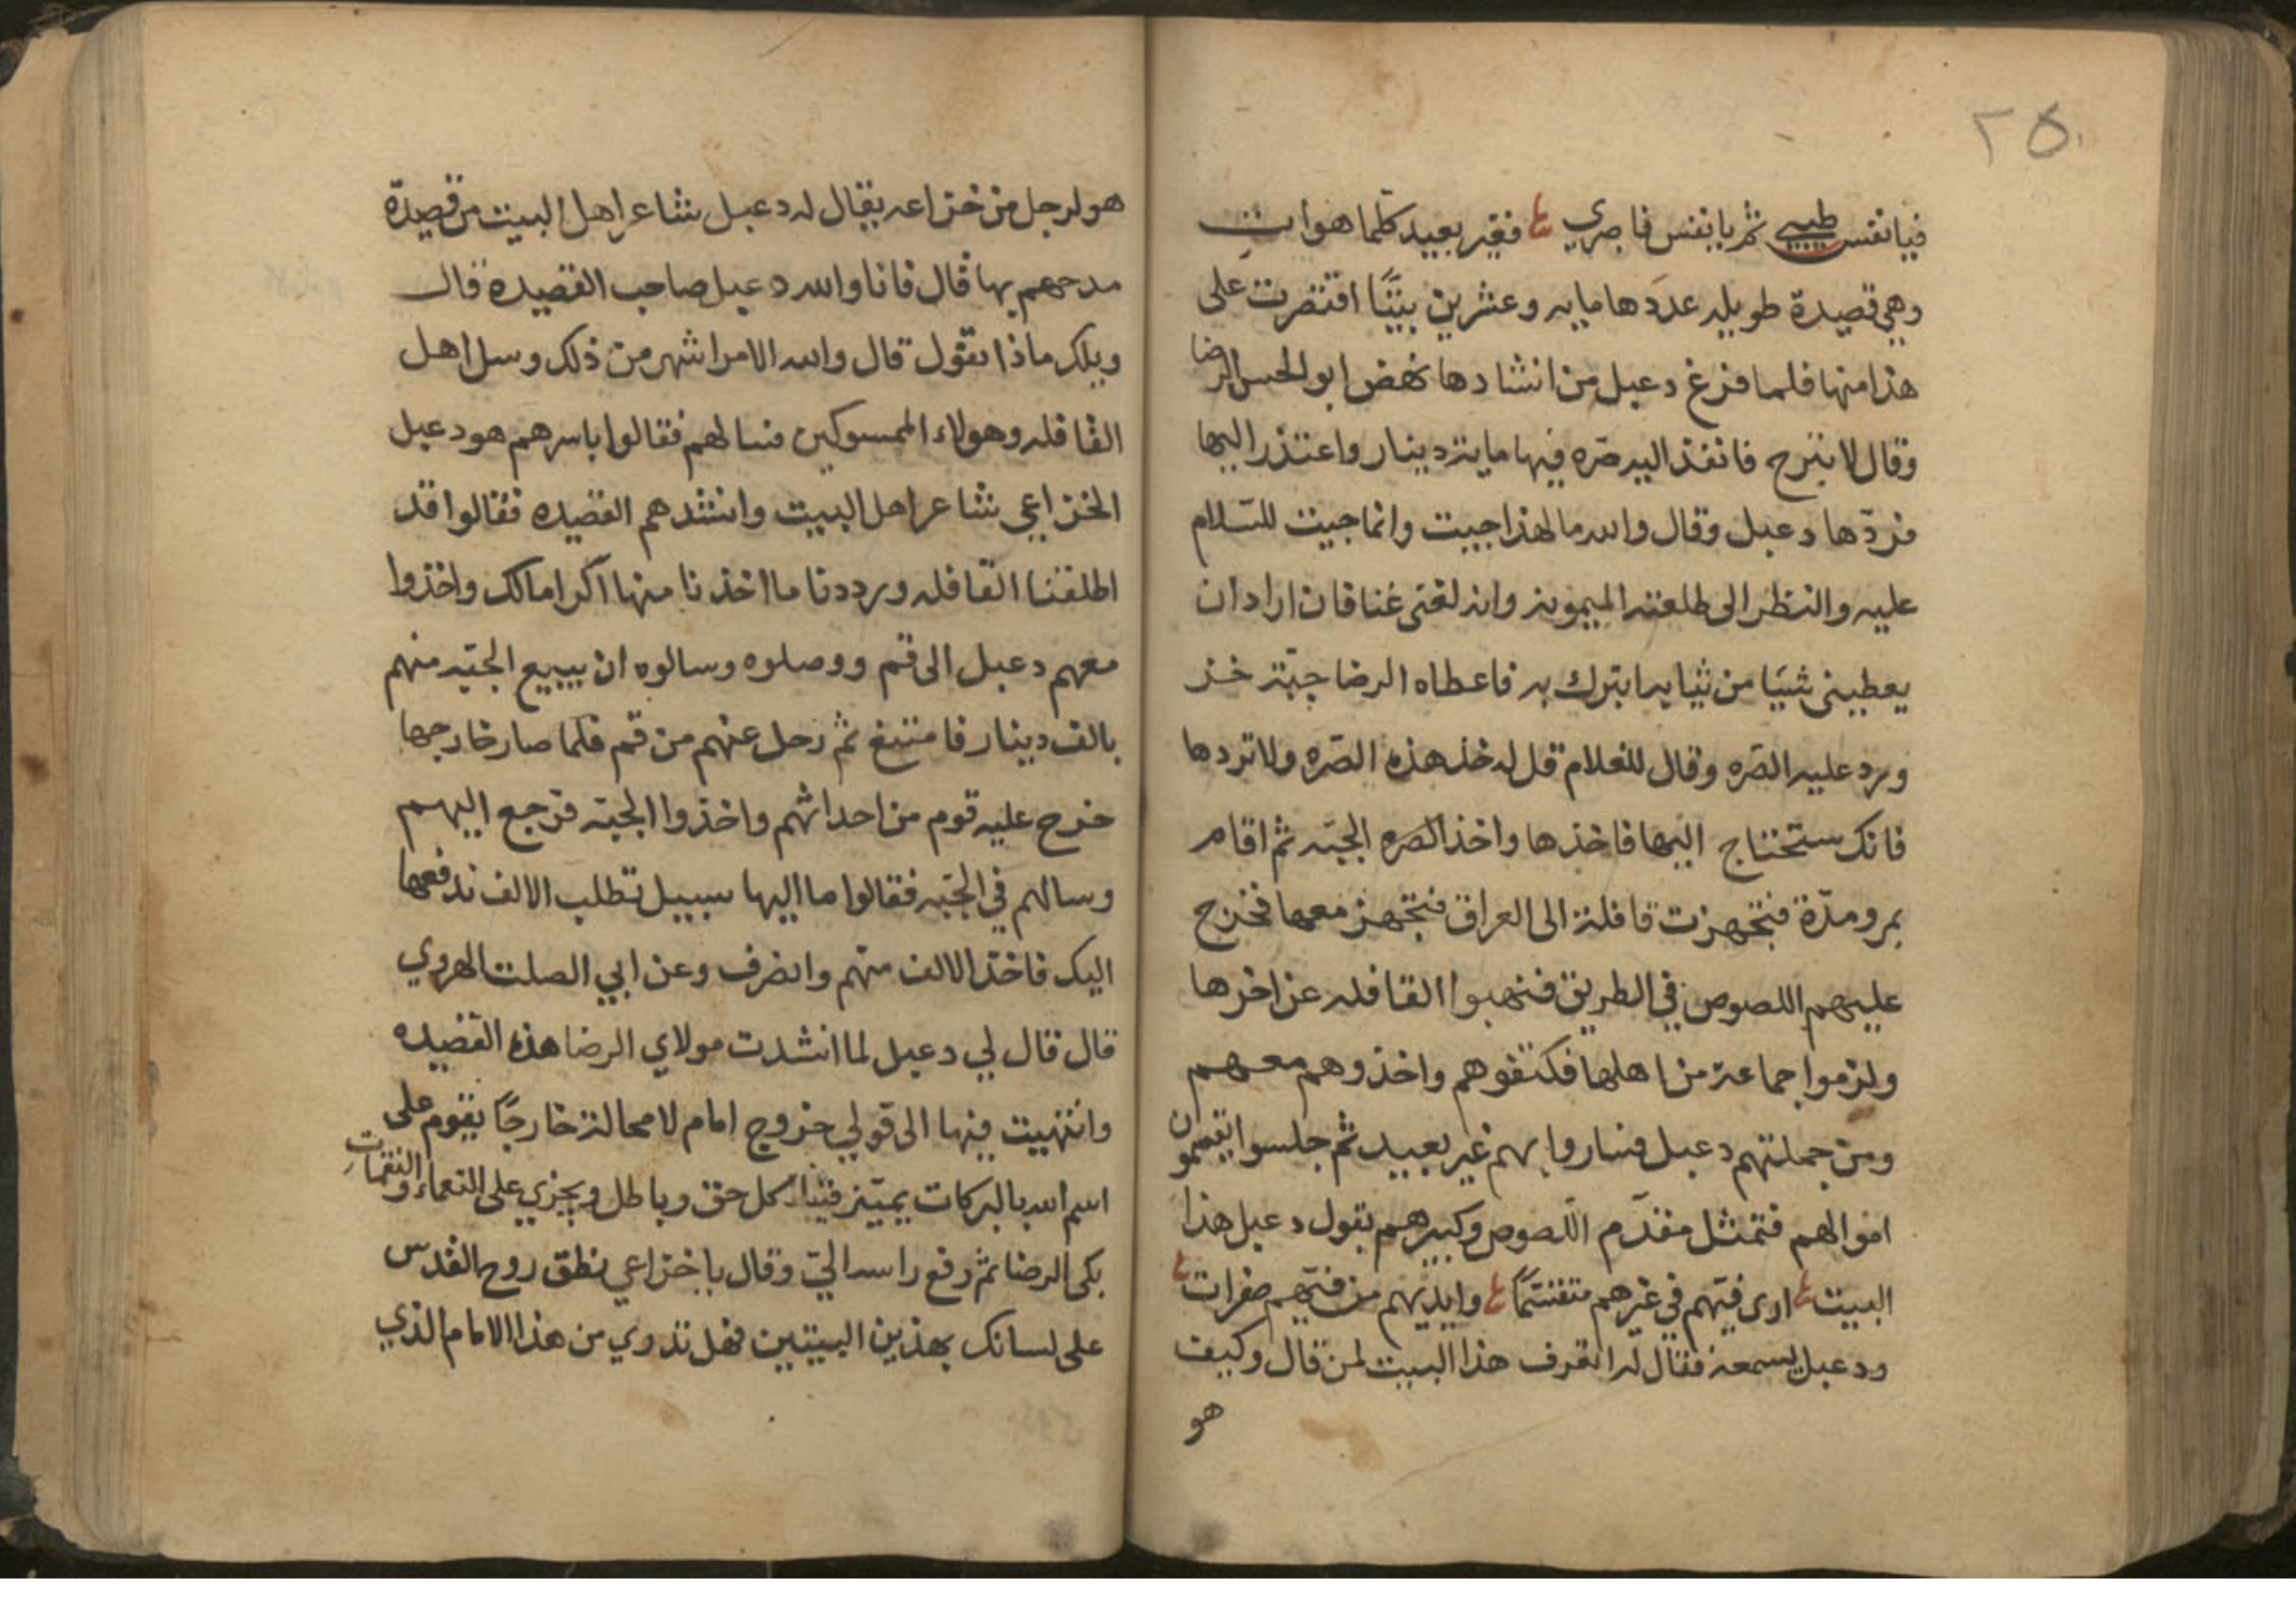 ٢٥٠
فيا نفس طيبي ثم يا نفس فاصري فغير بعيد كلما هوات
وهي قصيدة طويله عددها مايه وعشرين بيتًا اقتصرت على
هذا منها فلما فرغ دعبل من انشادها نهض ابو الحسن الرضا
وقال لا تبرح فانفذ اليه صّره فيها ماية دينار واعتذر اليها
فردّها دعبل وقال والله ما لهذا جيت وانما جيت للسّلام
عليه والنظر الى طلعته الميمونه وانه لفى غنا فان اراد ان
يعطيني شيًا من ثيابه اتبرك به فاعطاه الرضا جبّة خز
ورد عليه الصّره وقال للغلام قل له خذ هذه الصّره ولا تردها
فانك ستحتاج اليها فاخذها واخذ الصّره الجبّه ثم اقام
بمرو مدّة فتجهزت قافلة الى العراق فتجهز معها فخرج
عليهم اللصوص في الطريق فنهبوا القافله عن اخرها
ولزموا جماعة من اهلها فكتفوهم واخذوهم معهم
ومن جملتهم دعبل فساروا بهم غير بعيد ثم جلسوا يقسمون
اموالهم فتمثل مقدّم اللصوص وكبيرهم بقول دعبل هذا
البيت ارى فيّهم في غيرهم متقسّمًا وايديهم من فيّهم صفرات
ودعبل يسمعه فقال له اتعرف هذا البيت لمن قال وكيف
هو
هو لرجل من خزاعه يقال له دعبل شاعر اهل البيت من قصيدة
مدحهم بها قال فانا والله دعبل صاحب القصيده قال
ويلك ماذا تقول قال والله الامر اشهر من ذلك وسل اهل
القافله وهولاء الممسوكين فسالهم فقالوا باسرهم هو دعبل
الخزاعي شاعر اهل البيت وانشدهم القصيده فقالوا قد
اطلقنا القافله ورددنا ما اخذنا منها اكراما لك واخذوا
معهم دعبل الى قم ووصلوه وسالوه ان يبيع الجبّه منهم
بالف دينار فامتنع ثم رحل عنهم من قم فلما صار خارجها
خرج عليه قوم من احداثهم واخذوا الجبّه فرجع اليهم
وسالهم في الجبّه فقالوا ما اليها سبيل تطلب الالف ندفعها
اليك فاخذ الالف منهم وانصرف وعن ابي الصلت الهروي
قال قال لي دعبل لما انشدت مولاي الرضا هذه القصيده
وانتهيت فيها الى قولي خروج امام لا محالة خارجًا يقوم على
اسم الله بالبركات يميّز فينا كل حق وباطل ويجزي على النعماء والنقمات
بكى الرضا ثم رفع راسه اليّ وقال يا خزاعي نطق روح القدس
على لسانك بهذين البيتين فهل تدري من هذا الامام الذي